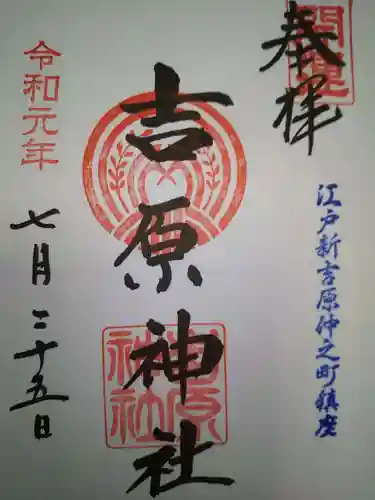 奉拝
開運
江戸新吉原仲之町鎮座
吉原神社
吉原神社
令和元年
七月二十五日